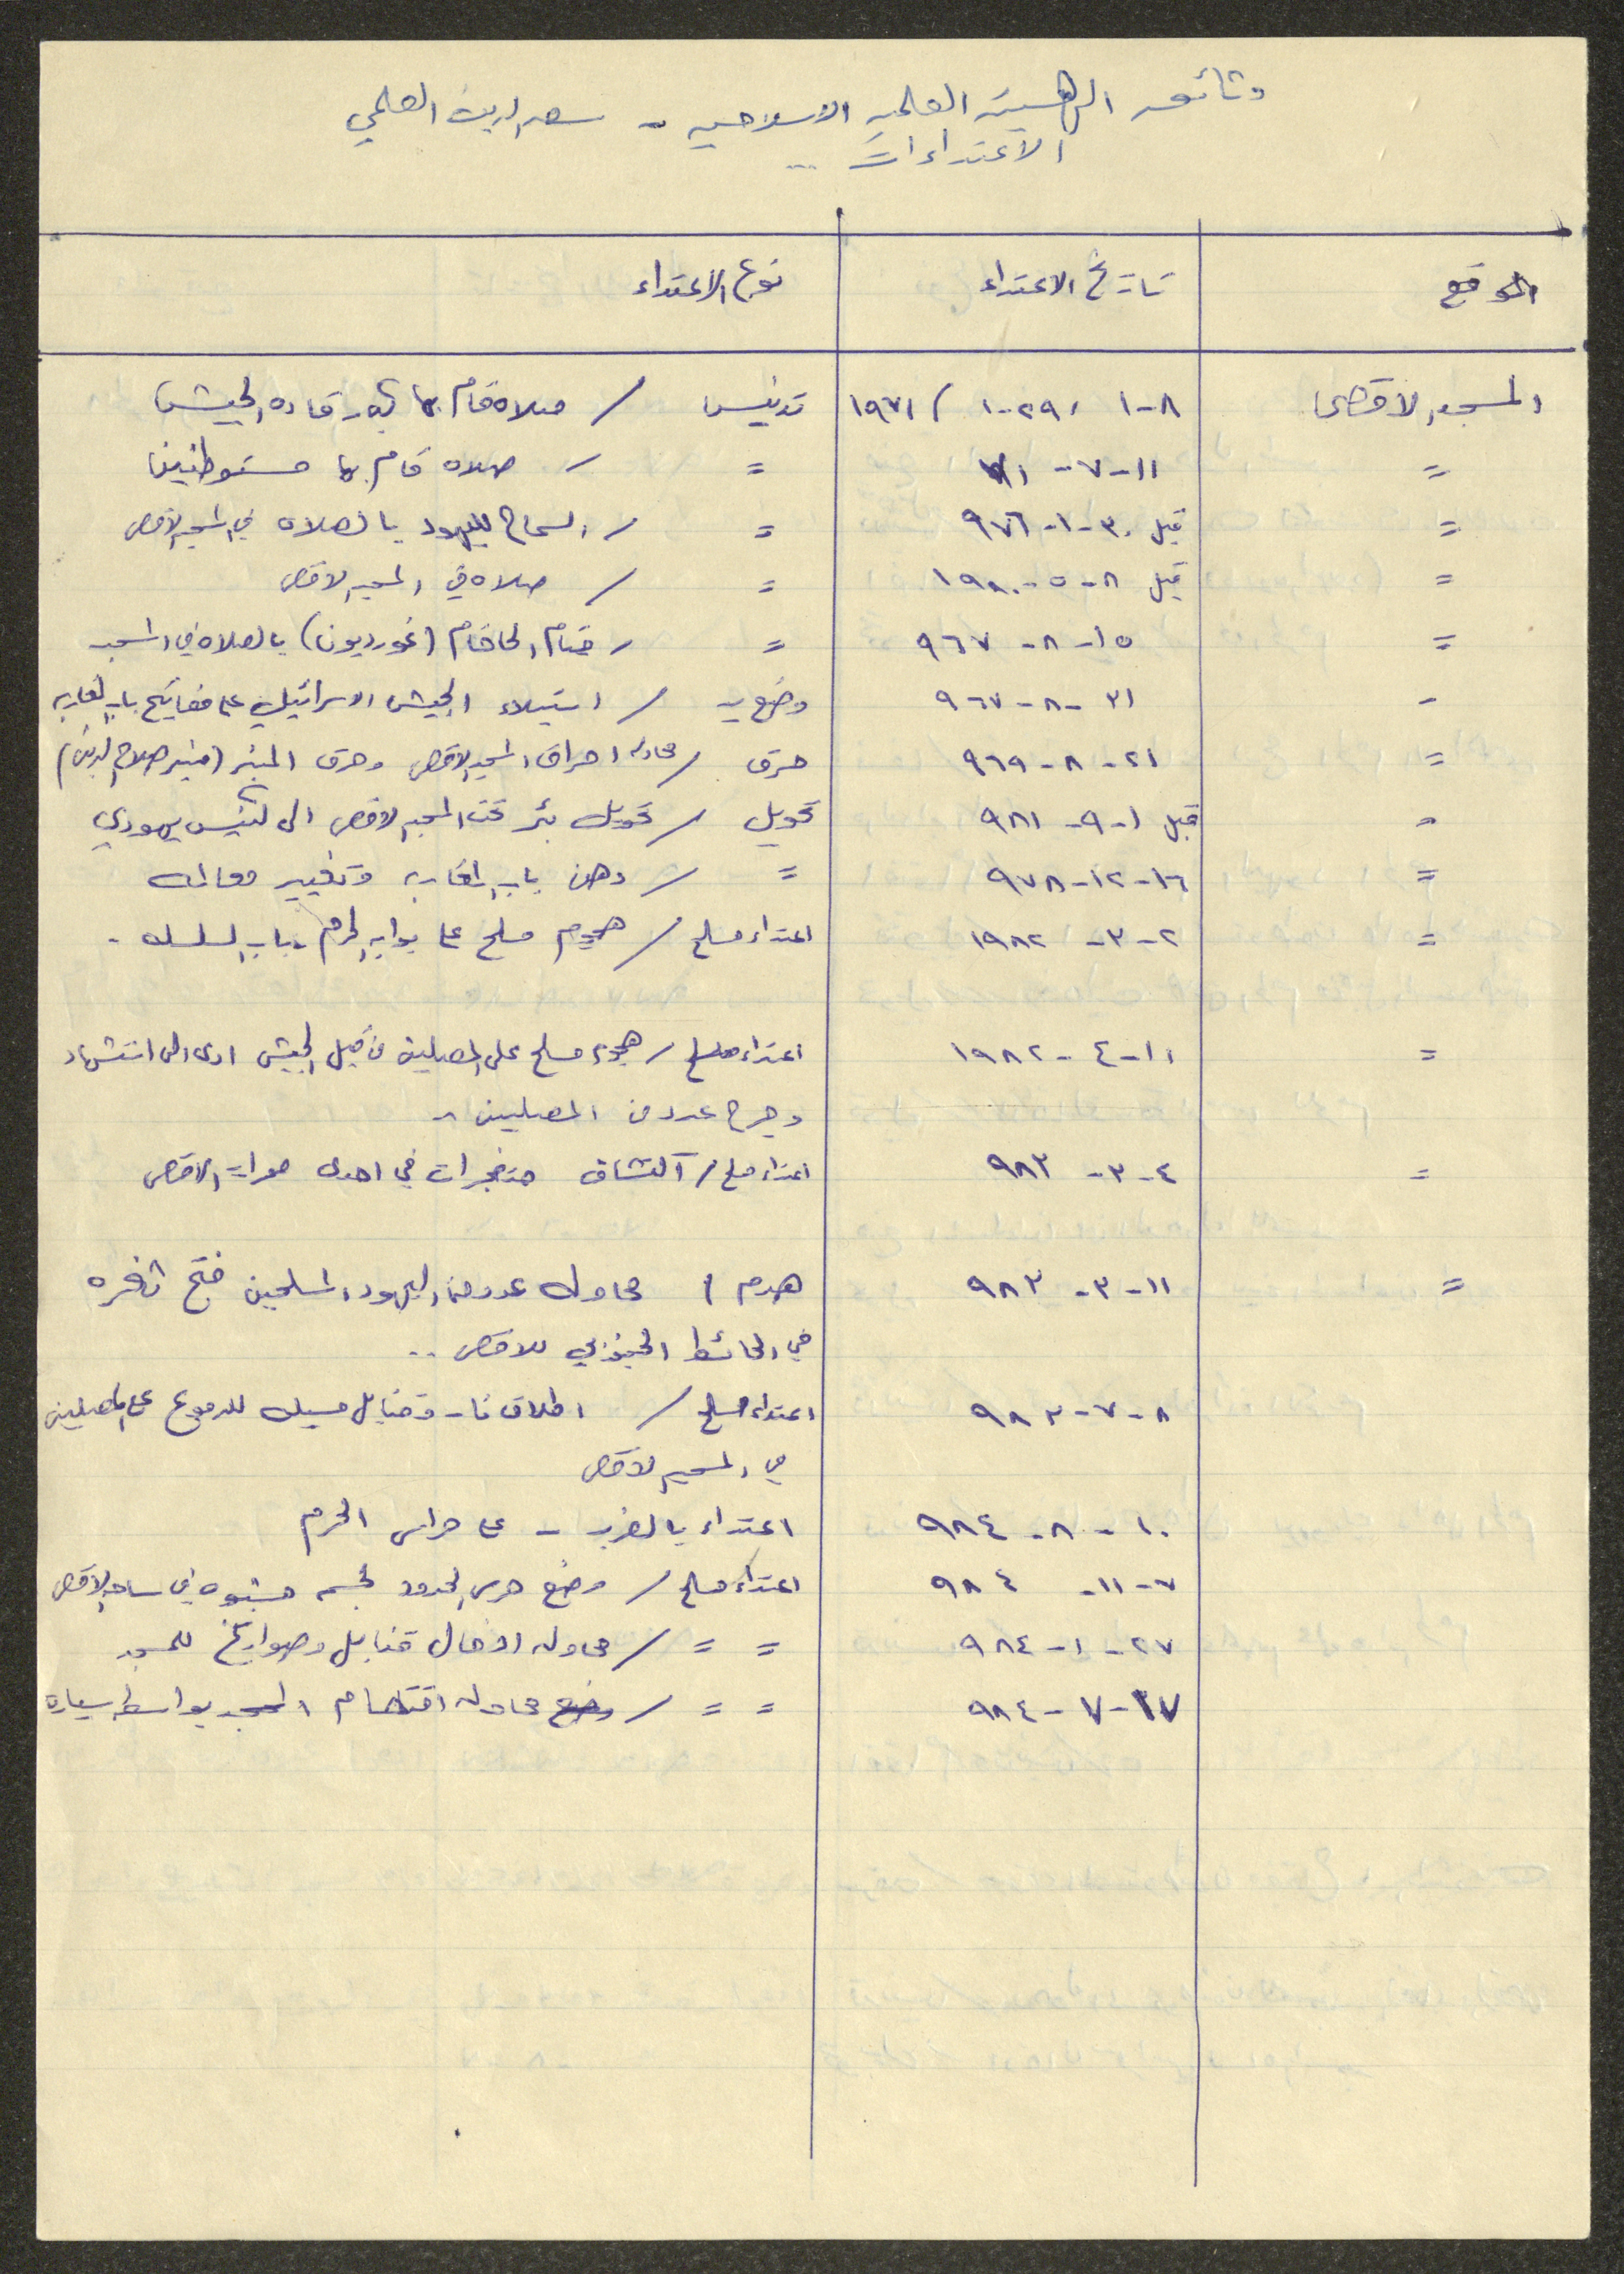 وثائق الهيئة العلمية الاسلامية - سعد الدين العلمي
الاعتداءات ..
الموقع تاريخ الاعتداء نوع الاعتداء
المسجد الاقصى ٨-١ ، ٢٩-١ / ١٩٧١ تدنيس / صلاة قام بها كبار قاده الجيش
= ١١-٧-٧١ = / صلاه قام بها مستوطنين
= قبل ٣٠-١-٩٧٦ = / السماح لليهود بالصلاه في المسجد الاقصى
= قبل ٨-٥-١٩٨٠ = / صلاه في المسجد الاقصى
= ١٥-٨-٩٦٧ = / قيام الحاخام (غورديون) بالصلاه في المسجد
- ٣١-٨-٩٦٧ وضع يد / استيلاء الجيش الاسرائيلي على مفاتيح باب المغاربه
= ٢١-٨-٩٦٩ حرق / محاوله احراق المسجد الاقصى وحرق المنبر (منبر صلاح الدين)
= قبل ١-٩-٩٨١ تحويل / تحويل بئر تحت المسجد الاقصى الى كنيس يهودي
= ١٦-١٢-٩٧٨ = / دهن باب المغاربه وتغيير معالمه
= ٢-٣-١٩٨٢ اعتداء مسلح / هجوم مسلح على بوابه الحرم - باب السلسله .
= ١١-٤-١٩٨٢ اعتداء مسلح / هجوم مسلح على المصلين من قبل الجيش ادى الى استشهاد
وجرح عدد من المصلين ..
= ٤-٣-٩٨٣ اعتداء مسلح / اكتشاف متفجرات في احدى ممرات الاقصى
= ١١-٣-٩٨٣ هدم / محاوله عدد من اليهود المسلحين فتح ثغره
في الحائط الجنوبي للاقصى ..
٨-٧-٩٨٣ اعتداء مسلح / اطلاق نار وقنابل مسيله للدموع على المصلين
في المسجد الاقصى
١٠-٨-٩٨٤ اعتداء بالضرب - على حراس الحرم
٧-١١-٩٨٤ اعتداء مسلح / وضع حرس الحدود لجسم مشبوه في ساحه الاقصى
٢٧-١-٩٨٤ = = / محاوله ادخال قنابل وصواريخ للمسجد
٢٧-٧-٩٨٤ = = / وضع محاوله اقتحام المسجد بواسطه سيارة